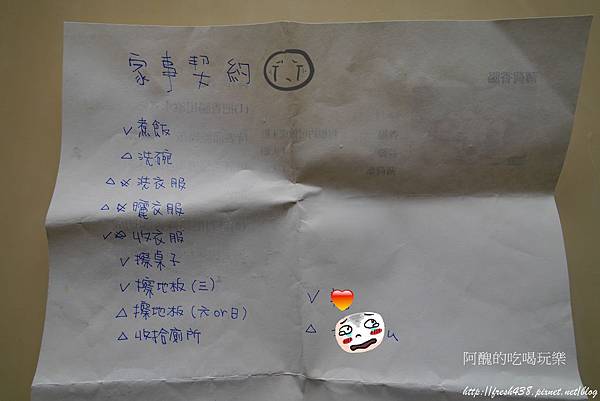 家事契約
✓ 煮飯
△ 洗碗
△ ☆ 洗衣服
△ ☆ 曬衣服
✓ ☆ 收衣服
✓ 擦桌子
✓ 擦地板(三)
△ 擦地板(六or日)
△ 收拾廁所
✓
△
阿醜的吃喝玩樂
http://fresh438.pixnet.net/blog